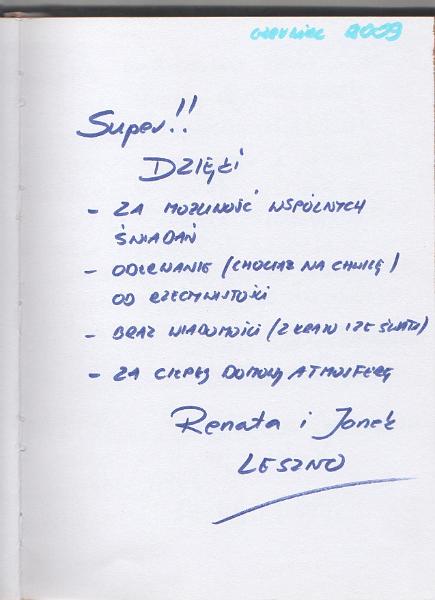 czerwiec 2009
Super!!
DZIĘKI
- ZA MOŻLIWOŚĆ WSPÓLNYCH
ŚNIADAŃ
- ODERWANIE (CHOCIAŻ NA CHWILĘ)
OD RZECZYWISTOŚCI
- BRAK WIADOMOŚCI (Z KRAJU I ZE ŚWIATA)
- ZA CIEPŁĄ DOMOWĄ ATMOSFERĘ
Renata i Jonek
LESZNO